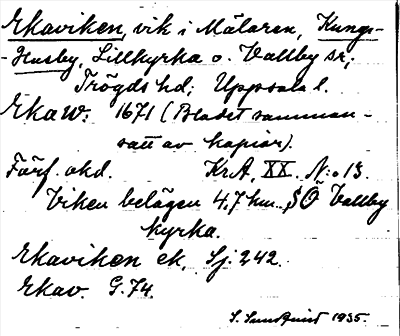 Ekaviken, vik i Mälaren, Kungs-
-Husby, Lillkyrka o. Vallby sr;
Trögds hd; Uppsala l.
Ekaw. 1671 (Bladet samman-
satt av kopior).
Förf. okd. Kr.A. XX. N:o 13.
Viken belägen 4,7 km. SÖ Vallby
kyrka.
Ekaviken ek. Sj. 242.
Ekav. G. 74.
S. Sundquist 1935.